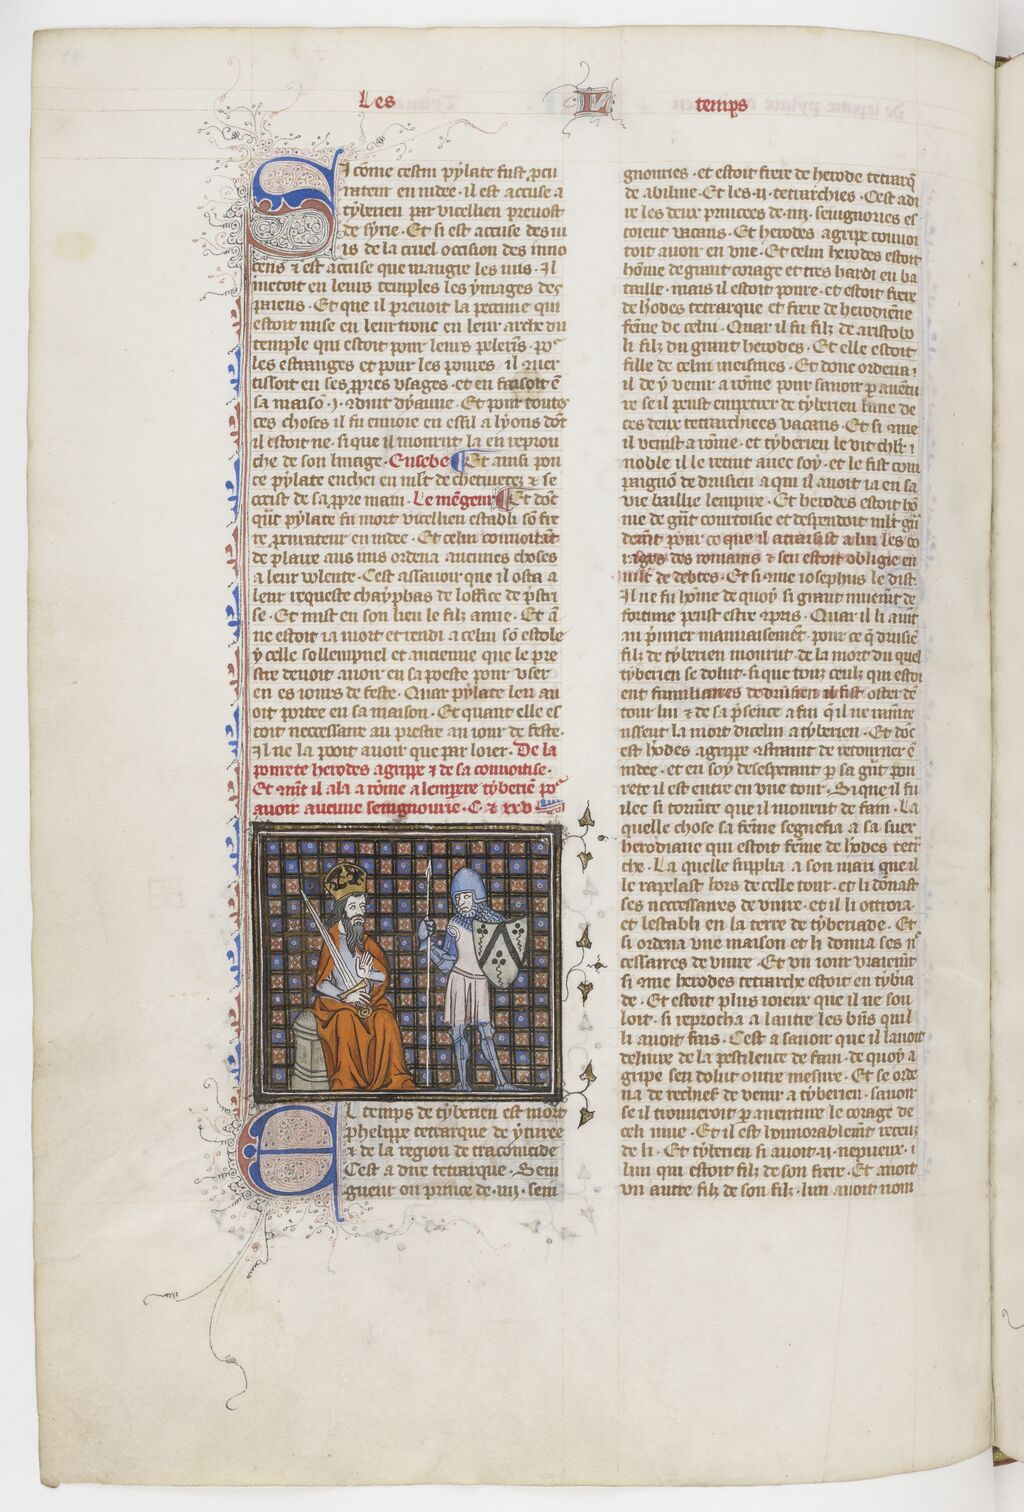 Les
temps
Si cōme cestui pylate fust ꝓcu
rateur en iudee · il est accuse a
tyberien par vitellien preuost
de syrie · Et si est accuse des iu
is de la cruel occision des inno
cens ⁊ est accuse que maugre les iuis · Il
metoit en leurs temples les ymages des
paiens · Et que il prenoit la pecune qui
estoit mise en leur tronc en leur arche du
temple qui estoit pour leurs pelerīs · poᵘʳ
les estranges et pour les poures il auer
tissoit en ses ꝓpres vsages · et en faisoit ē
sa maisō · j · ꝯduit dyaue · Et pour toutes
ces choses il fu enuoie en essil a lyons dōt
il estoit ne · si que il mourut la en reprou
che de son linage · Eusebe ¶ Et ainsi pon
ce pylate enchei en mlt̄ de chetiuetez ⁊ se
occist de sa ꝓpre main · Le mēgeur ¶ Et dōt
qūt pylate fu mort vitellien establi sō fre
re ꝓcurateur en iudee · Et celui conuoitāt
de plaire aus iuis ordena aucunes choses
a leur volente · Cest assauoir que il osta a
leur requeste chayphas de loffice de p̄stri
se · Et mist en son lieu le filz anne · Et ā
ne estoit ia mort et rendi a celui sō estole
ycelle sollempnel et ancienne que le pre
stre deuoit auoir en sa poeste pour vser
en es iours de feste · Quar pylate leu au
oit portee en sa maison · Et quant elle es
toit neccessaire au prestre au iour de feste ·
Il ne la pooit auoir que par loier · De la
pourete herodes agrippe ⁊ de sa conuoitise ·
Et cōmt il ala a rōme a lempere tyberiē poᵘʳ
auoir aucune seingnourie · C · ⁊ xxv ·
El temps de tyberien est mort
phelippe tetrarque de yturee
⁊ de la region de traconitide
Cest a dire tetrarque · Sein
gneur ou prince de · iiij · sein
gnouries · et estoit frere de herode tetrarq̄
de abiline · Et les · ij · tetrarchies · Cest adi
re les deux princees de · iiij · seingnories es
toient vacans · Et herodes agripe conuoi
toit auoir en vne · Et celui herodes estoit
hōme de grant corage et tres hardi en ba
taille · mais il estoit poure · et estoit frere
de h̄odes tetrarque et frere de herodiene
fēme de celui · Quar il fu filz de aristobo
li filz du grant herodes · Et elle estoit
fille de celui meismes · Et donc ordena ·
il de y venir a rōme pour sauoir ꝑ auētu
re se il peust empetrer de tyberien lune de
ces deux tetrarchiees vacans · Et si ꝯme
il venist a rōme · et tyberien le vit chlr̄ ·
noble il le retint auec soy · et le fist com
paignō de drusien a qui il auoit ia en sa
vie baillie lempire · Et herodes estoit hō
me de gn̄t courtoisie et despendoit mlt̄ gn̄
demt̄ pour ce que il atraisist a lui les co
rages des romains ⁊ sen estoit obligie en
mlt̄ de debtes · Et si ꝯme iosephus le dist
Il ne fu hōme de quoy si grant muemt̄ de
fortune peust estre ꝯpris · Quar il li auīt
au p̄mier mauuaisemēt · pour ce q̄ drusiē
filz de tyberien mourut · de la mort du quel
tyberien se dolut · si que touz ceulz qui estoi
ent familiaires de drusien il fist oster de
tour lui ⁊ de sa p̄sence a fin q̄ il ne ramēte
uissent la mort dicelui a tyberien · Et dōc
est h̄odes agrippe ꝯtraint de retourner ē
iudee · et en soy desesperant ꝑ sa gn̄t pou
rete il est entre en vne tour · Si que il fu
ilec si tormēte que il mourut de fain · La
quelle chose sa fēme segnefia a sa suer
herodiane qui estoit fēme de h̄odes tetr̄
che · La quelle supplia a son mari que il
le rapelast hors de celle tour · et li dōnast
ses neccessaires de viure · et il li ottroia ·
et lestabli en la terre de tyberiade · Et
si ordena vne maison et li donna ses nᵉ
cessaires de viure · Et vn iour vraiemt̄
si ꝯme herodes tetrarche estoit en tyberia
de · Et estoit plus ioieux que il ne sou
loit · si reprocha a lautre les biēs quil
li auoit fais · Cest a sauoir que il lauoit
deliure de la pestilence de fain · de quoy a
gripe sen dolut outre mesure · Et se orde
na de rechief de venir a tyberien · sauoir
se il trouueroit ꝑ auenture le corage de
celi mue · Et il est honnorablemt̄ receuz
de li · Et tyberien si auoit · ij · nepueux ·
lun qui estoit filz de son frere · Et auoit
vn autre filz de son filz · lun auoit nom